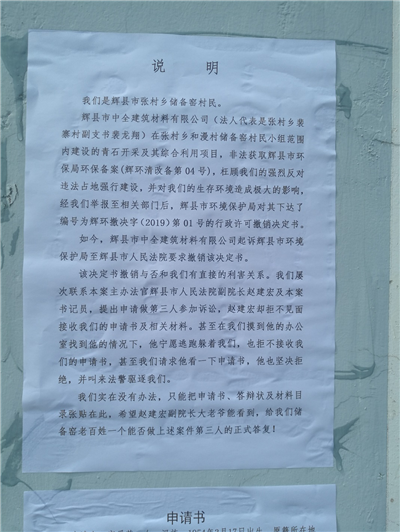 说 明
我们是辉县市张村乡储备窑村民。
辉县市中全建筑材料有限公司（法人代表是张村乡裴
寨村副支书裴龙翔）在张村乡和漫村储备窑村民小组范围
内建设的青石开采及其综合利用项目，非法获取辉县市环
保局环保备案(辉环清改备第 04 号)，枉顾我们的强烈反对
违法占地强行建设，并对我们的生存环境造成极大的影响，
经我们举报至相关部门后，辉县市环境保护局对其下达了
编号为辉环撤决字(2019)第 01 号的行政许可撤销决定书。
如今，辉县市中全建筑材料有限公司起诉辉县市环境
保护局至辉县市人民法院要求撤销该决定书。
该决定书撤销与否和我们有直接的利害关系。我们屡
次联系本案主办法官辉县市人民法院副院长赵建宏及本案
书记员，提出申请做第三人参加诉讼，赵建宏却拒不见面
接收我们的申请书及相关材料。甚至在我们摸到他的办公
室找到他的情况下，他宁愿逃跑躲着我们，也拒不接收我
们的申请书，甚至我们请求他看一下申请书，他也坚决拒
绝，并叫来法警驱逐我们。
我们实在没有办法，只能把申请书、答辩状及材料目
录张贴在此，希望赵建宏副院长大老爷能看到，给我们储
备窑老百姓一个能否做上述案件第三人的正式答复！
申请书